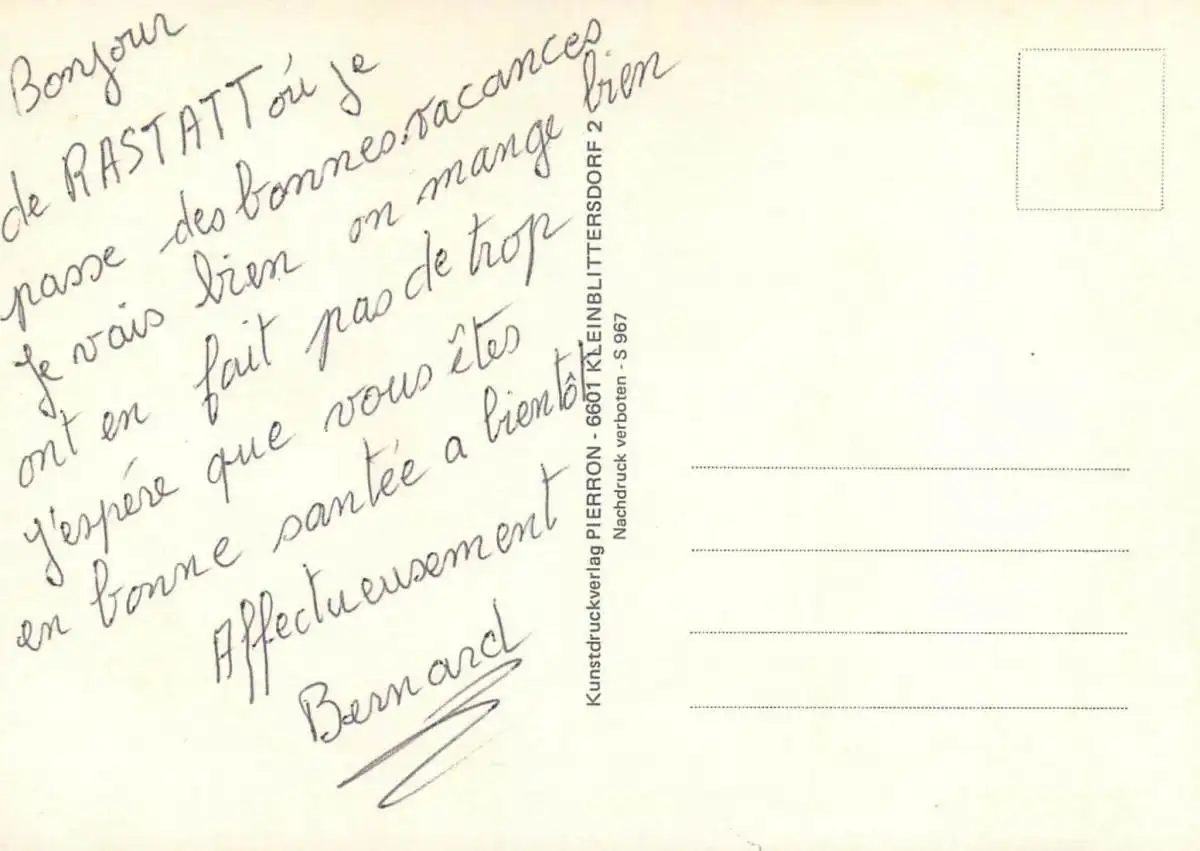 Bonjour
de RASTATT où je
passe des bonnes vacances
Je vais bien on mange bien
ont en fait pas de trop
J'espére que vous êtes
en bonne santée a bientôt
Affectueusement
Bernard
Kunstdruckverlag PIERRON - 6601 KLEINBLITTERSDORF 2
Nachdruck verboten - S 967